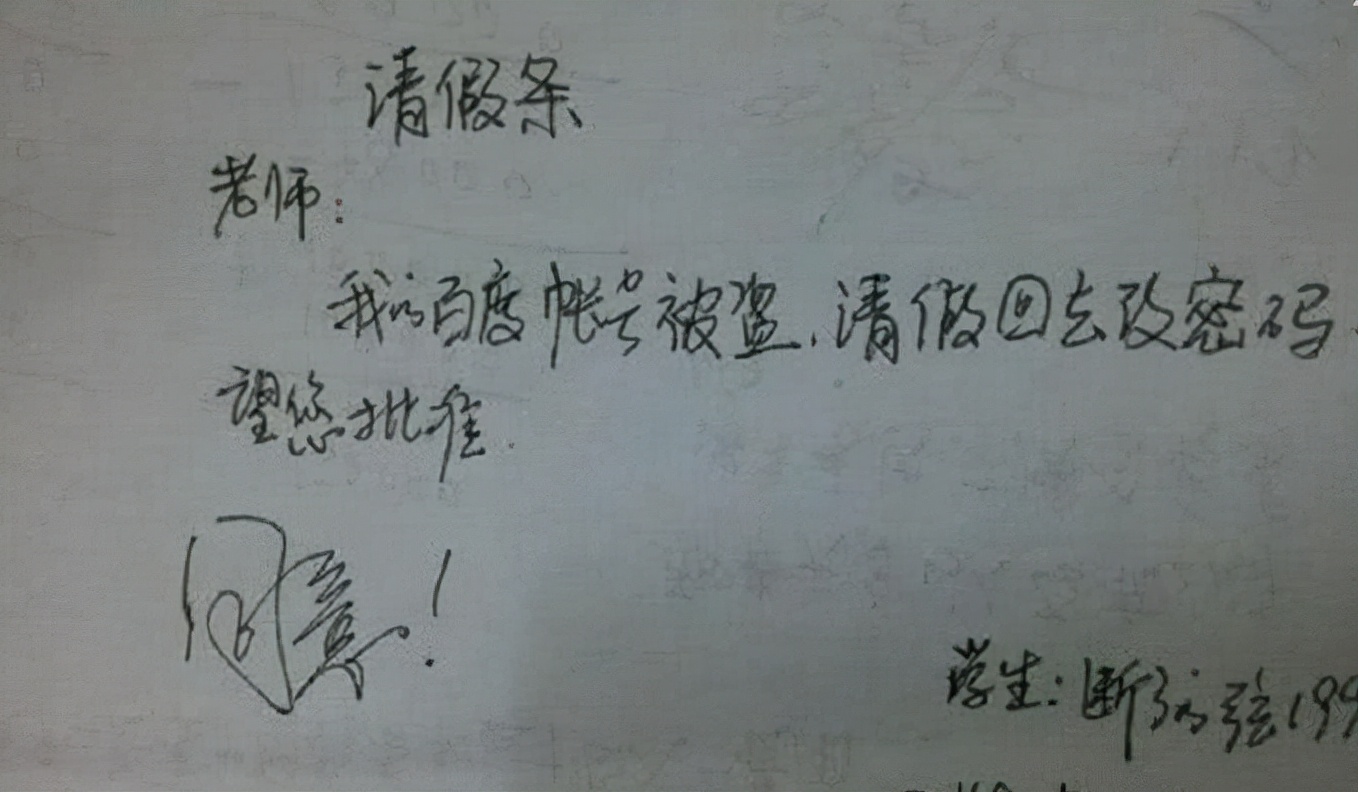 请假条
老师：
我的百度帐号被盗，请假回去改密码，
望您批准。
同意！
学生：断了的弦199